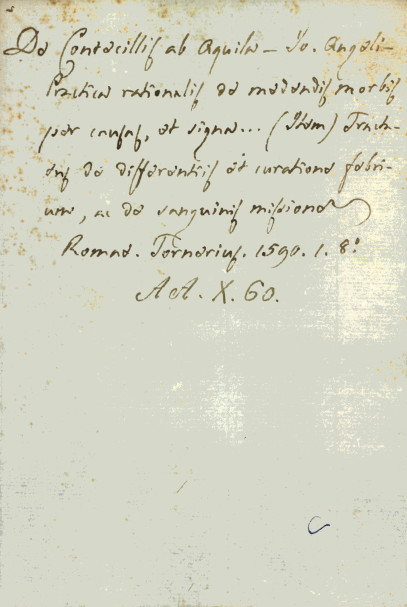 De Contecillis ab Aquila - Jo. Angeli-
Practica rationalis de medendis morbis
per causas, et signa... (Item) Tracta-
tus de differentiis et curatione febri-
um, ac de sanguinis missione
Romae. Tornerius. 1590. 1. 8º
AA. X. 60.